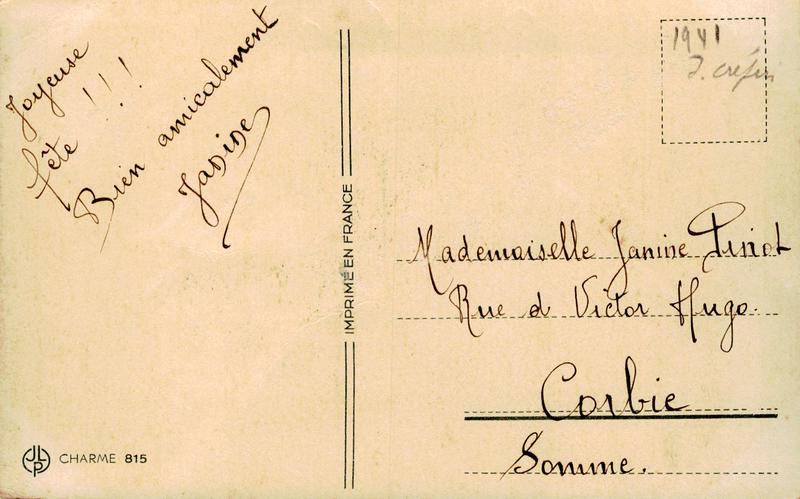 Joyeuse
fête !!!
Bien amicalement
Janine
IMPRIMÉ EN FRANCE
JLP
CHARME 815
1941
Mademoiselle Janine
Rue d Victor Hugo.
Corbie
Somme.